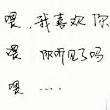 喂..我喜欢你
喂 你听见了吗
喂 ....